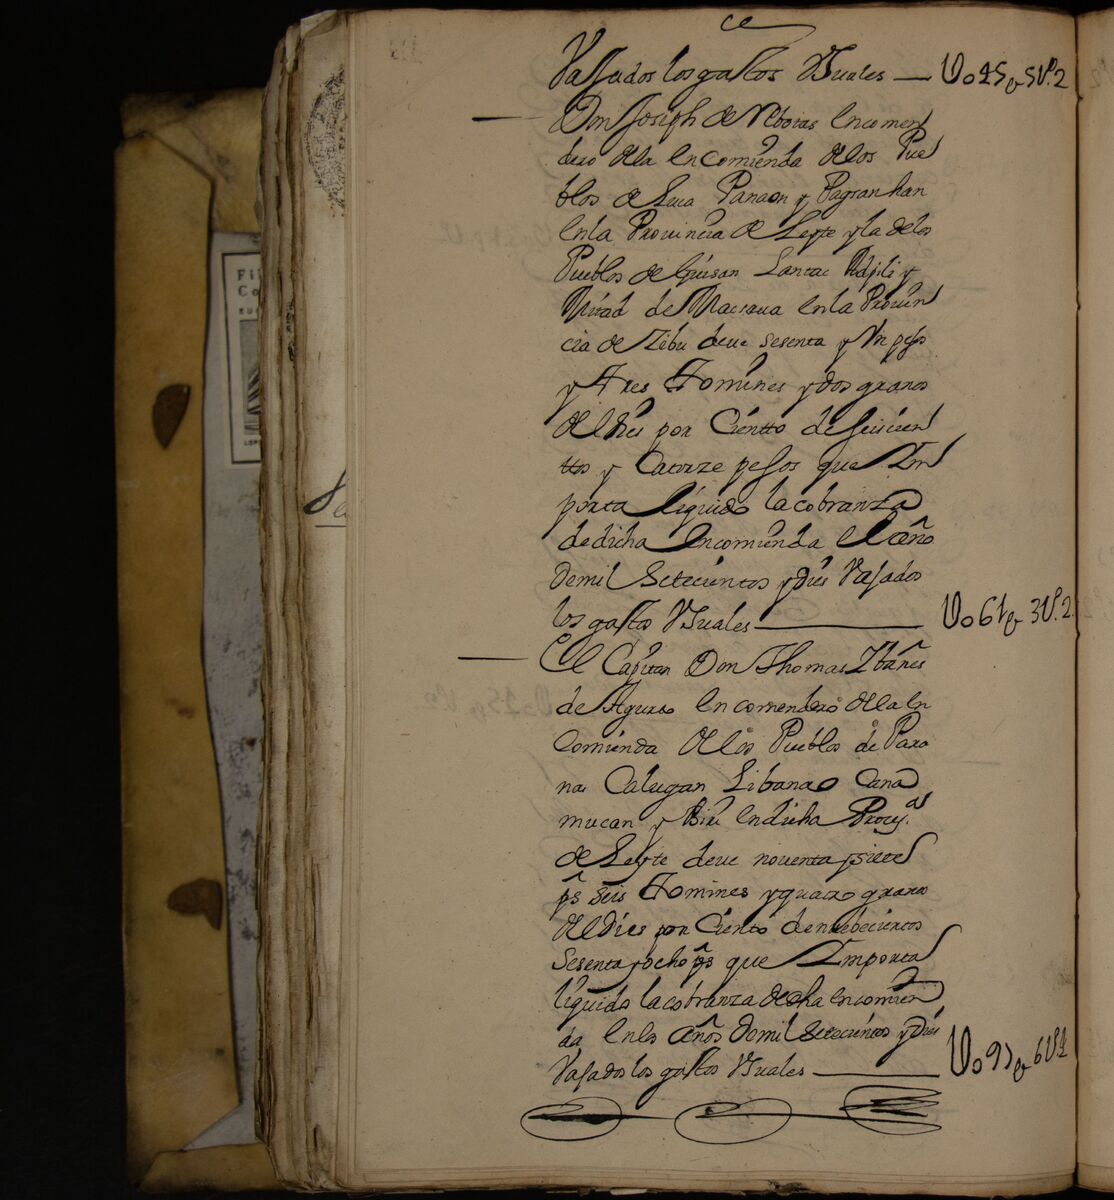 Vajados los gastos Vsuales — Uo25ps 5Us.2
Don Joseph de Vboras Encomen
dero de la Encomienda de los Pue
blos de Leca Panaon y Pagsanhan
En la Provincia de Leyte y la de los
Pueblos de Guisan Lantac y
Mitad de Macsaua en la Provin
cia de Zibu deve sesenta y Vn pesos
y Tres Tomines y dos granos
del dies por Cientto de seiscien
ttos y Catorze pesos que Im
porta liquido la cobranza
de dicha Encomienda El año
de mil Setecientos y dies Vajados
los gastos Vsuales — Uo61ps 3Us.2
El Capitan Don Thomas Ybañes
de Agurto Encomendero de la En
Comienda de los Pueblos de Para
nas Calugan Libanao Cana
mucan y en dicha
de Leyte deve noventa y siete
ps seis Tomines y quatro granos
del dies por Ciento de nuebecientos
Sesenta y ocho ps que Importa
liquido la cobranza de dha encomien
da En los años de mil Setecientos y dies
Vajados los gastos Vsuales —